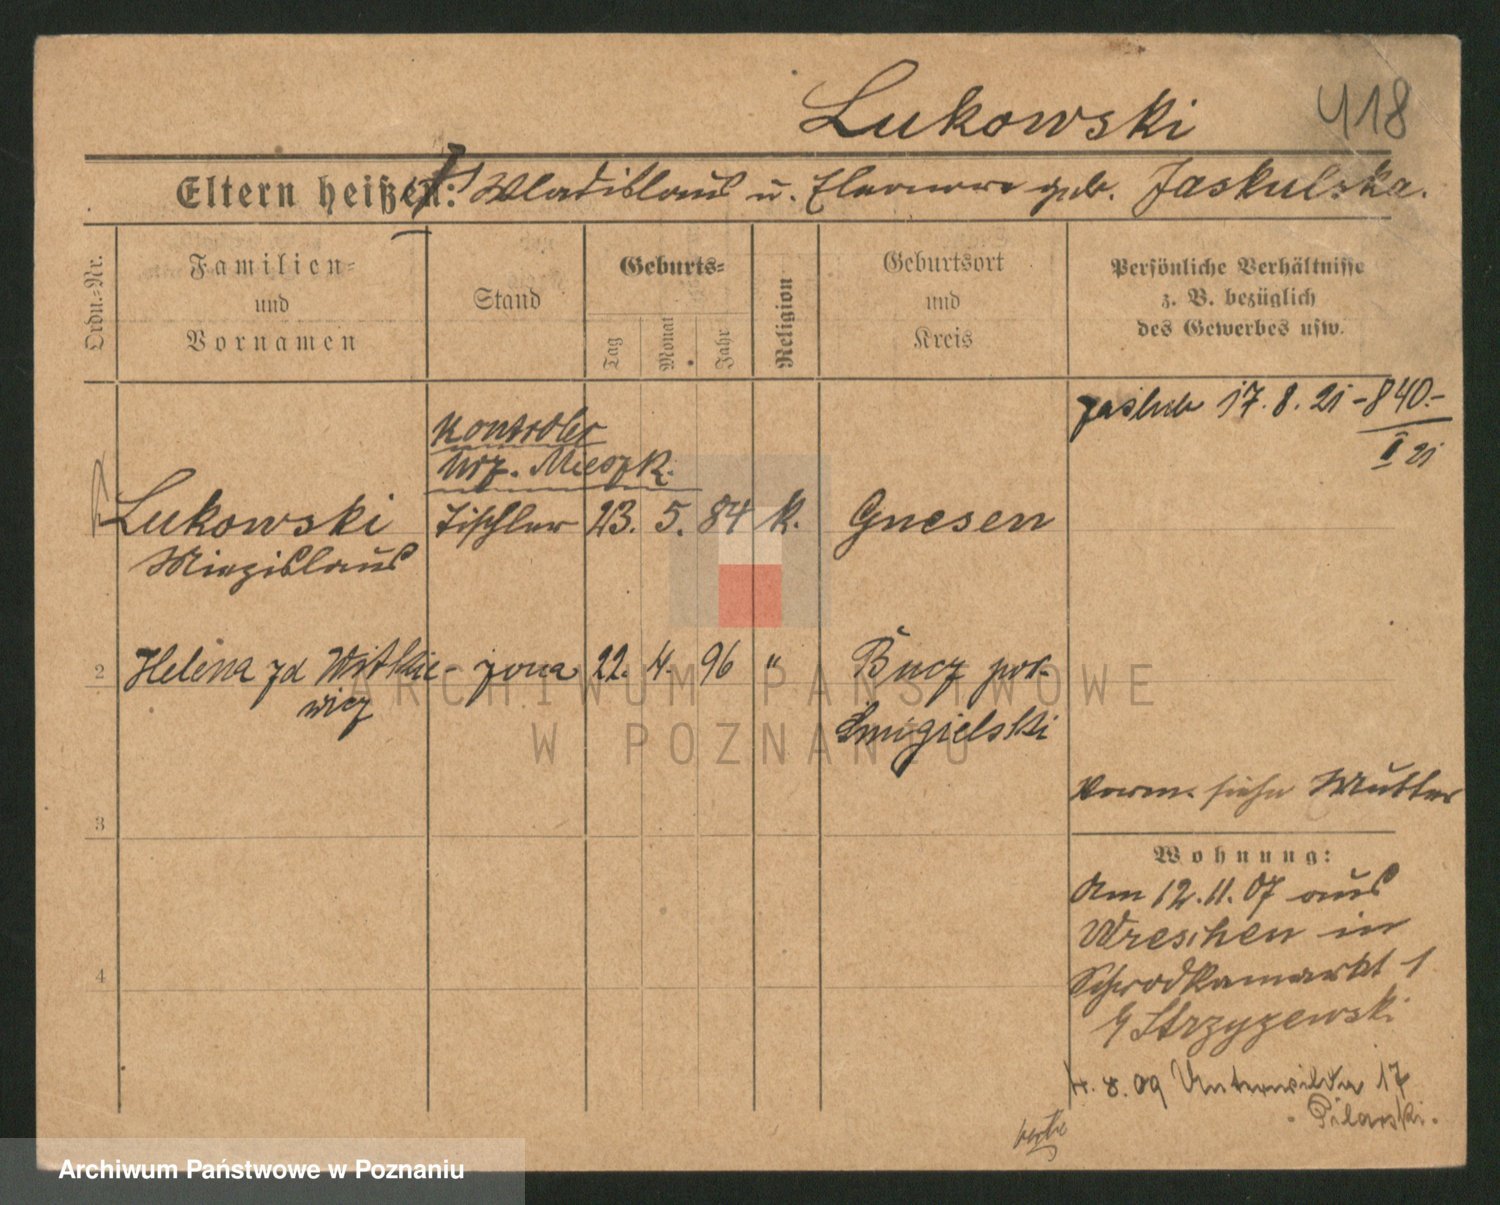 Lukowski
418
Eltern heißen: Wladislaus u. Eleonore geb. Jaskulska.
Ordn.-Nr.
Familien-
und
Vornamen
Stand
Geburts-
Tag
Monat
Jahr
Religion
Geburtsort
und
Kreis
Persönliche Verhältnisse
z. B. bezüglich
des Gewerbes usw.
17.8.21 - 840.-
II 21
Kontroler
Urz. Mieszk.
Lukowski Tischler 23. 5. 84 k. Gnesen
Miezislaus
2 Helena zd Witkie- żona 22. 4. 96 " Bucz pow.
wicz
Śmigielski
3
Verm. siehe Mutter
Wohnung:
Am 12.11.07 aus
Wreschen in
4
Schrodkamarkt 1
b/ Strzyzewski
4.8.09 Unterwilda 17
Pilarski.
ARCHIWUM PAŃSTWOWE
W POZNANIU
Archiwum Państwowe w Poznaniu